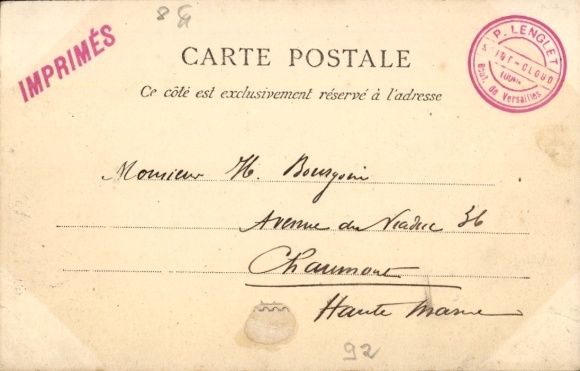 8 G
IMPRIMÉS
P. LENGLET
SAINT-CLOUD
Boul. de Versailles
CARTE POSTALE
Ce côté est exclusivement réservé à l'adresse
Monsieur H. Bourgoin
Avenue du Viaduc 36
Chaumont
Haute Marne
92